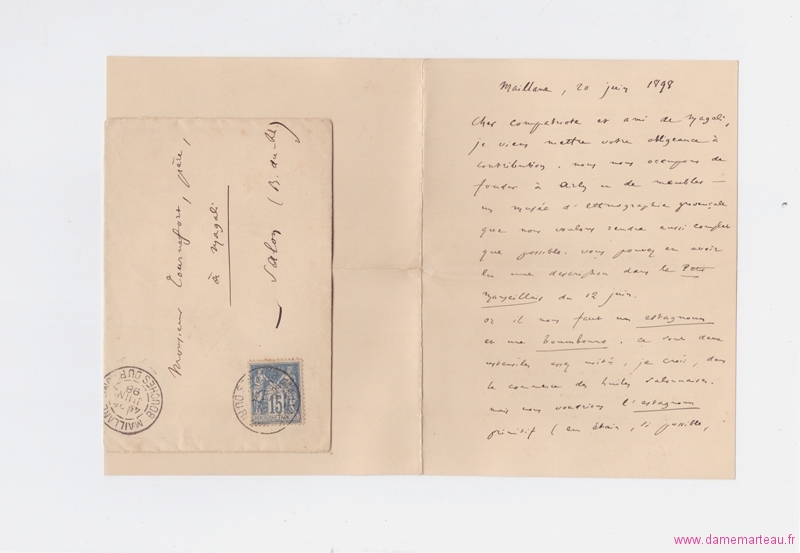 Maillane, 20 juin 1898
Cher compatriote et ami de Magali,
je viens mettre votre obligeance à
contribution. nous nous occupons de
fonder à Arles et de meubler —
un musée d'ethnographie provençale
que nous voulons rendre aussi complet
que possible. vous pouvez en avoir
lu une description dans le Petit
Marseillais du 12 juin.
or il nous faut un estagnoun
et une boumbouno. ce sont deux
ustensiles assez usités, je crois, dans
le commerce des huiles salonnaises.
mais nous voudrions l'estagnoun
primitif (en étain, si possible,
Monsieur Tournefort, père,
à Magali
Salon (B. du-Rh)
MAILLANE
BOUCHES DU R.
JUIN
98
15
www.damemarteau.fr